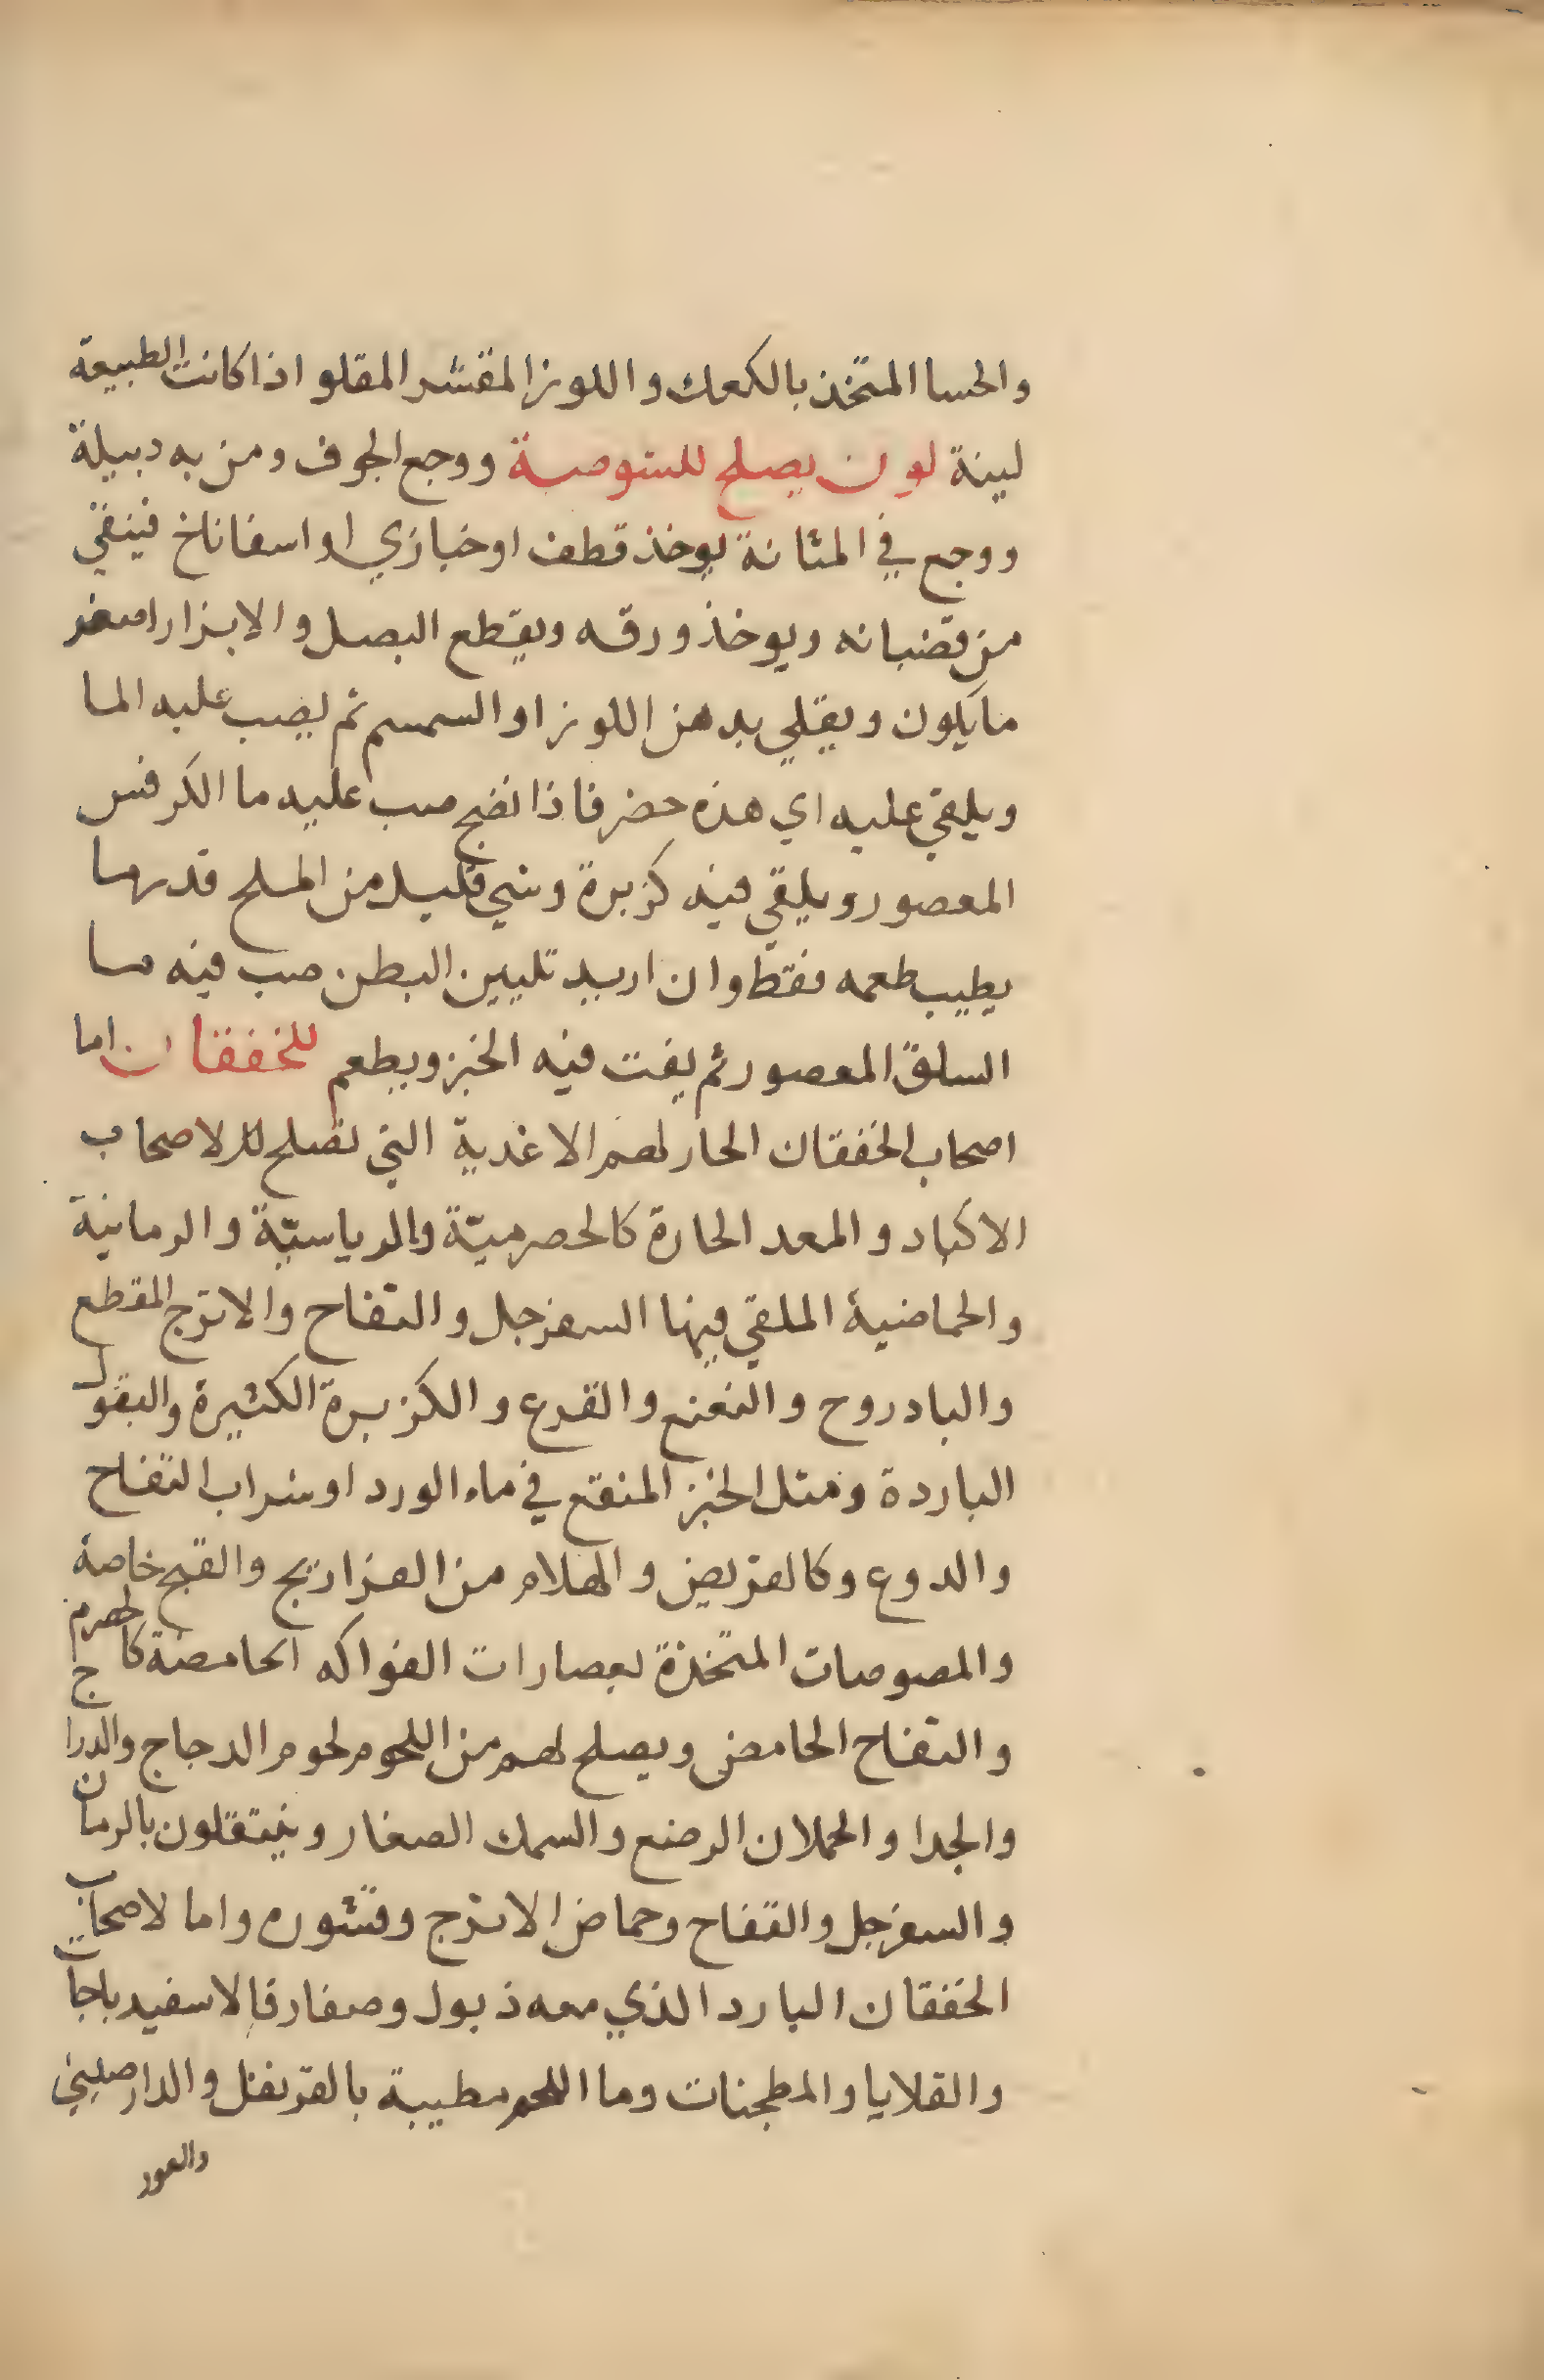 والحسا المتخذ بالكعك واللوز المقشر المقلو اذا كانت الطبيعة
لينة لون يصلح للشوصة ووجع الجوف ومن به دبيلة
ووجع في المثانة يوخذ قطف او خبازي او اسفاناخ فينقي
من قضبانه ويوخذ ورقه ويقطع البصل والابزار اصغر
ما يكون ويقلي بدهن اللوز او السمسم ثم يصب عليه الما
ويلقي عليه اي هذه حضر فاذا نضج صب عليه ما الكرفس
المعصور ويلقي فيه كزبرة وشي قليل من الملح قدر ما
يطيب طعمه فقط وان اريد تليين البطن صب فيه ما
السلق المعصور ثم يفت فيه الخبز ويطعم للخفقان اما
اصحاب الخفقان الحار لهم الاغدية التي تصلح للاصحاب
الاكباد والمعد الحارة كالحصرمية والريباسية والرمانية
والحماضية الملقي فيها السفرجل والتفاح والاترج المقطع
والبادروح والنعنع والقرع والكزبرة الكثيرة والبقول
الباردة ومثل الخبز المنقع في ماء الورد او شراب التفاح
والدوغ وكالقريص والهلام من الفراريج والقبج خاصة
والمصوصات المتخذة بعصارات الفواكه الحامضة كالحصرم
والتفاح الحامض ويصلح لهم من اللحوم لحوم الدجاج والدراج
والجدا والحملان الرضع والسمك الصغار وينتقلون بالرمان
والسفرجل والتفاح وحماض الاترج وقشوره واما لاصحاب
الخفقان البارد الذي معه ذبول وصفار فالاسفيدباجات
والقلايا والمطجنات وما اللحم مطيبة بالقرنفل والدارصيني
والعود